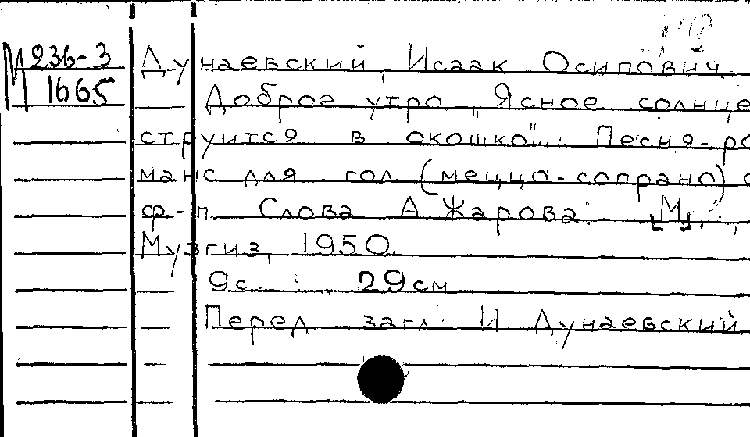 М 236-3
1665
Дунаевский, Исаак Осипович.
Доброе утро „Ясное солнце
струится в окошко". Песня-ро
манс для гол. (меццо-сопрано) с
ф-п. Слова А. Жарова. [М],
Музгиз, 1950.
9с. 29см
Перед загл.: И Дунаевский